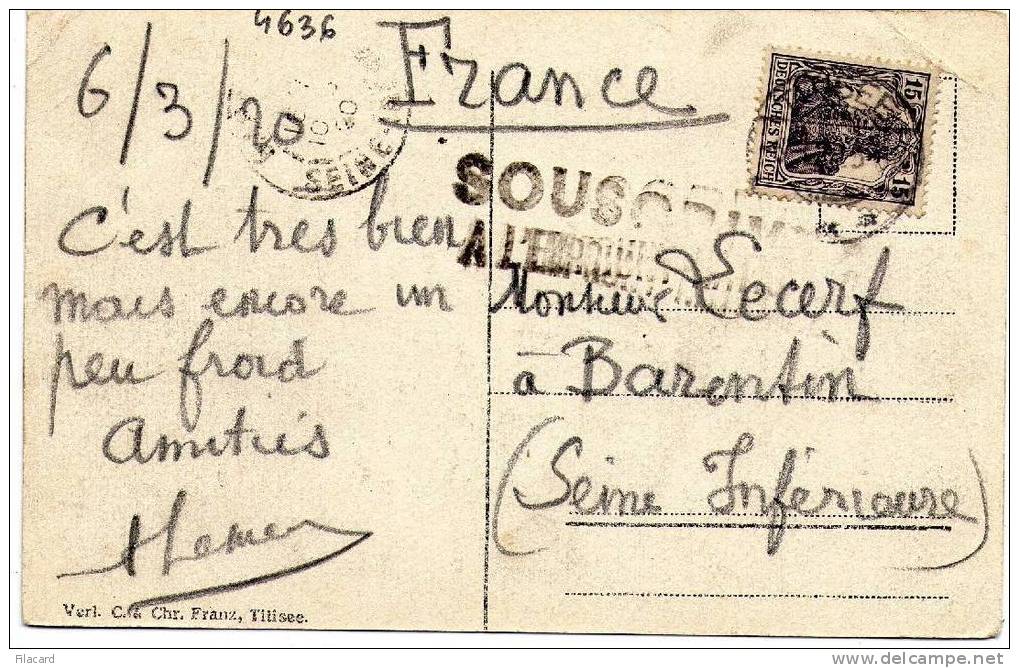 4636
6/3/20
France
SEINE
DEUTSCHES REICH
15
15
SOUSCRIVEZ
A L'EMPRUNT
C'est tres bien
mais encore un
peu froid
Amitiés
Monsieur Lecerf
à Barentin
(Seine Inférieure)
Verl. C.& Chr. Franz, Titisee.
Filacard
www.delcampe.net